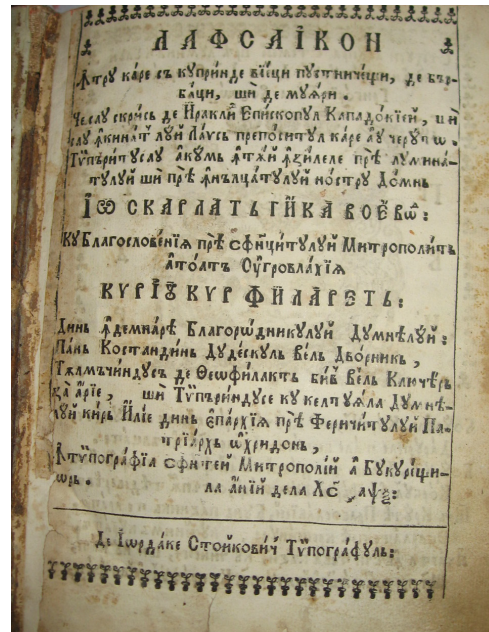 ЛАФСАІКОН
Ꙟтру каре съ купринде віѣци пустничещи, де бър-
баци, ши де муѧри.
Че с҆ꙋ скрисъ де Ираклй Епископул Кападокіей, ши
с҆ꙋ ꙟкинат луй Лаусъ препоситул каре ау черут ѡ.
Тѵпъритус҆ꙋ акумъ ꙟтѫй ꙟ зилеле прѣ лумина-
тулуй ши прѣ ꙟнълцатулуй ностру Домнь
ІѠ СКАРЛАТЬ ГИКА ВОЕВѠ:
Ку Благословеніѧ прѣ сфинцитулуй Митрополить
а тоатъ Оуггровлахіѧ
КѴРІѸ КѴР ФИЛАРЕТЬ:
Динь ꙟдемнарѣ Благорѡдникулуй Думнѣлуй:
Пань Костандинь Дудескуль Вель Дворникь,
де Ѳеѡфилакть бив Вель Ключѣрь
за Аріе, ши Тѵпъриндусе ку келтуѧла Думнѣ-
луй кирь Иліе динь епархіѧ прѣ Феричитулуй Па-
тріархь ѡхридонь,
Ꙟ тѵпографіѧ сфинтей Митрополій а Букурещи-
ѡрь. ла аній дела Хс ҂аѱѯ:
Де Іѡрдаке Стойкович Тѵпографуль: